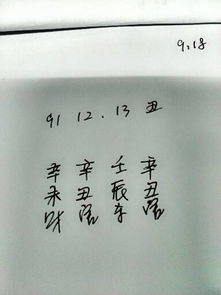 9.18
91 12.13 丑
辛 辛 壬 辛
未 丑 辰 丑